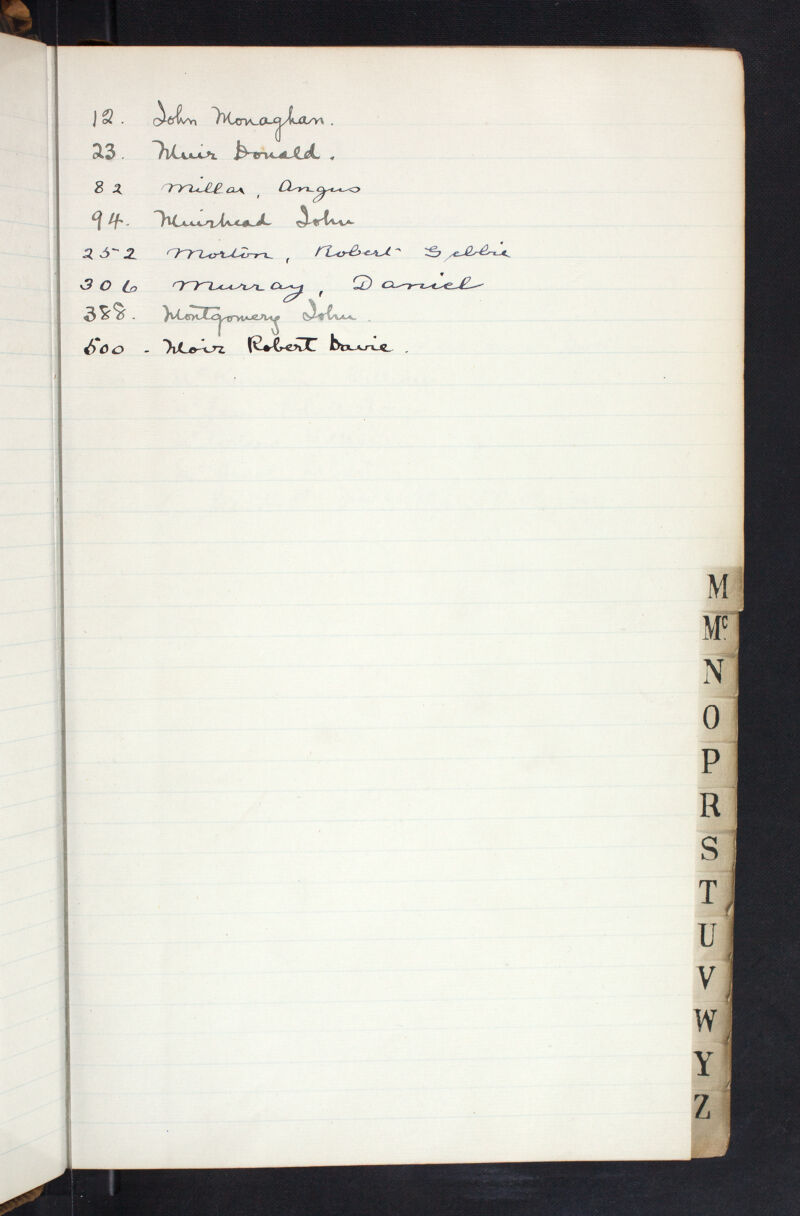 12. John Monaghan.
23. Muir Donald.
82 Millar, Angus
94. Muirhead John
252 Morton, Robert Gebbie
306 Murray, Daniel
388. Montgomery John.
500 - Moir Robert Davie.
M
Mc.
N
O
P
R
S
T
U
V
W
Y
Z